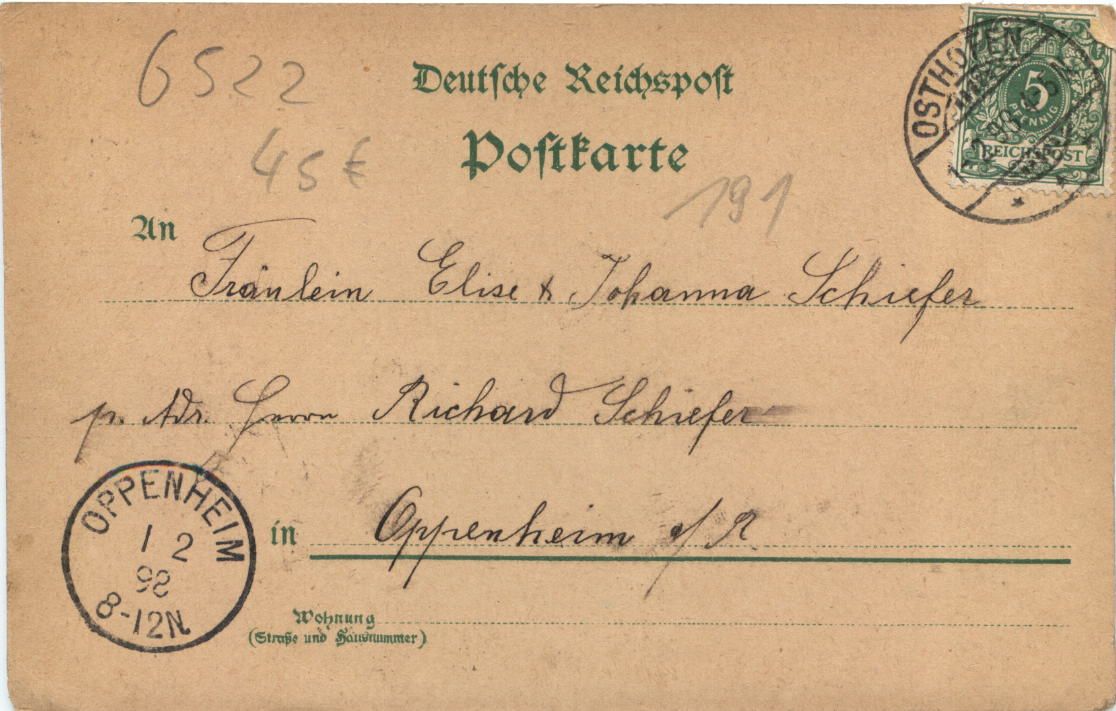 6522
Deutsche Reichspost
45 €
Postkarte
191
OSTHOFEN
1.2.98
5
PFENNIG
REICHSPOST
An Fräulein Elise & Johanna Schiefer
p. Adr. Herrn Richard Schiefer
in Oppenheim a/R
OPPENHEIM
1 2
98
8-12N
Wohnung
(Straße und Hausnummer)